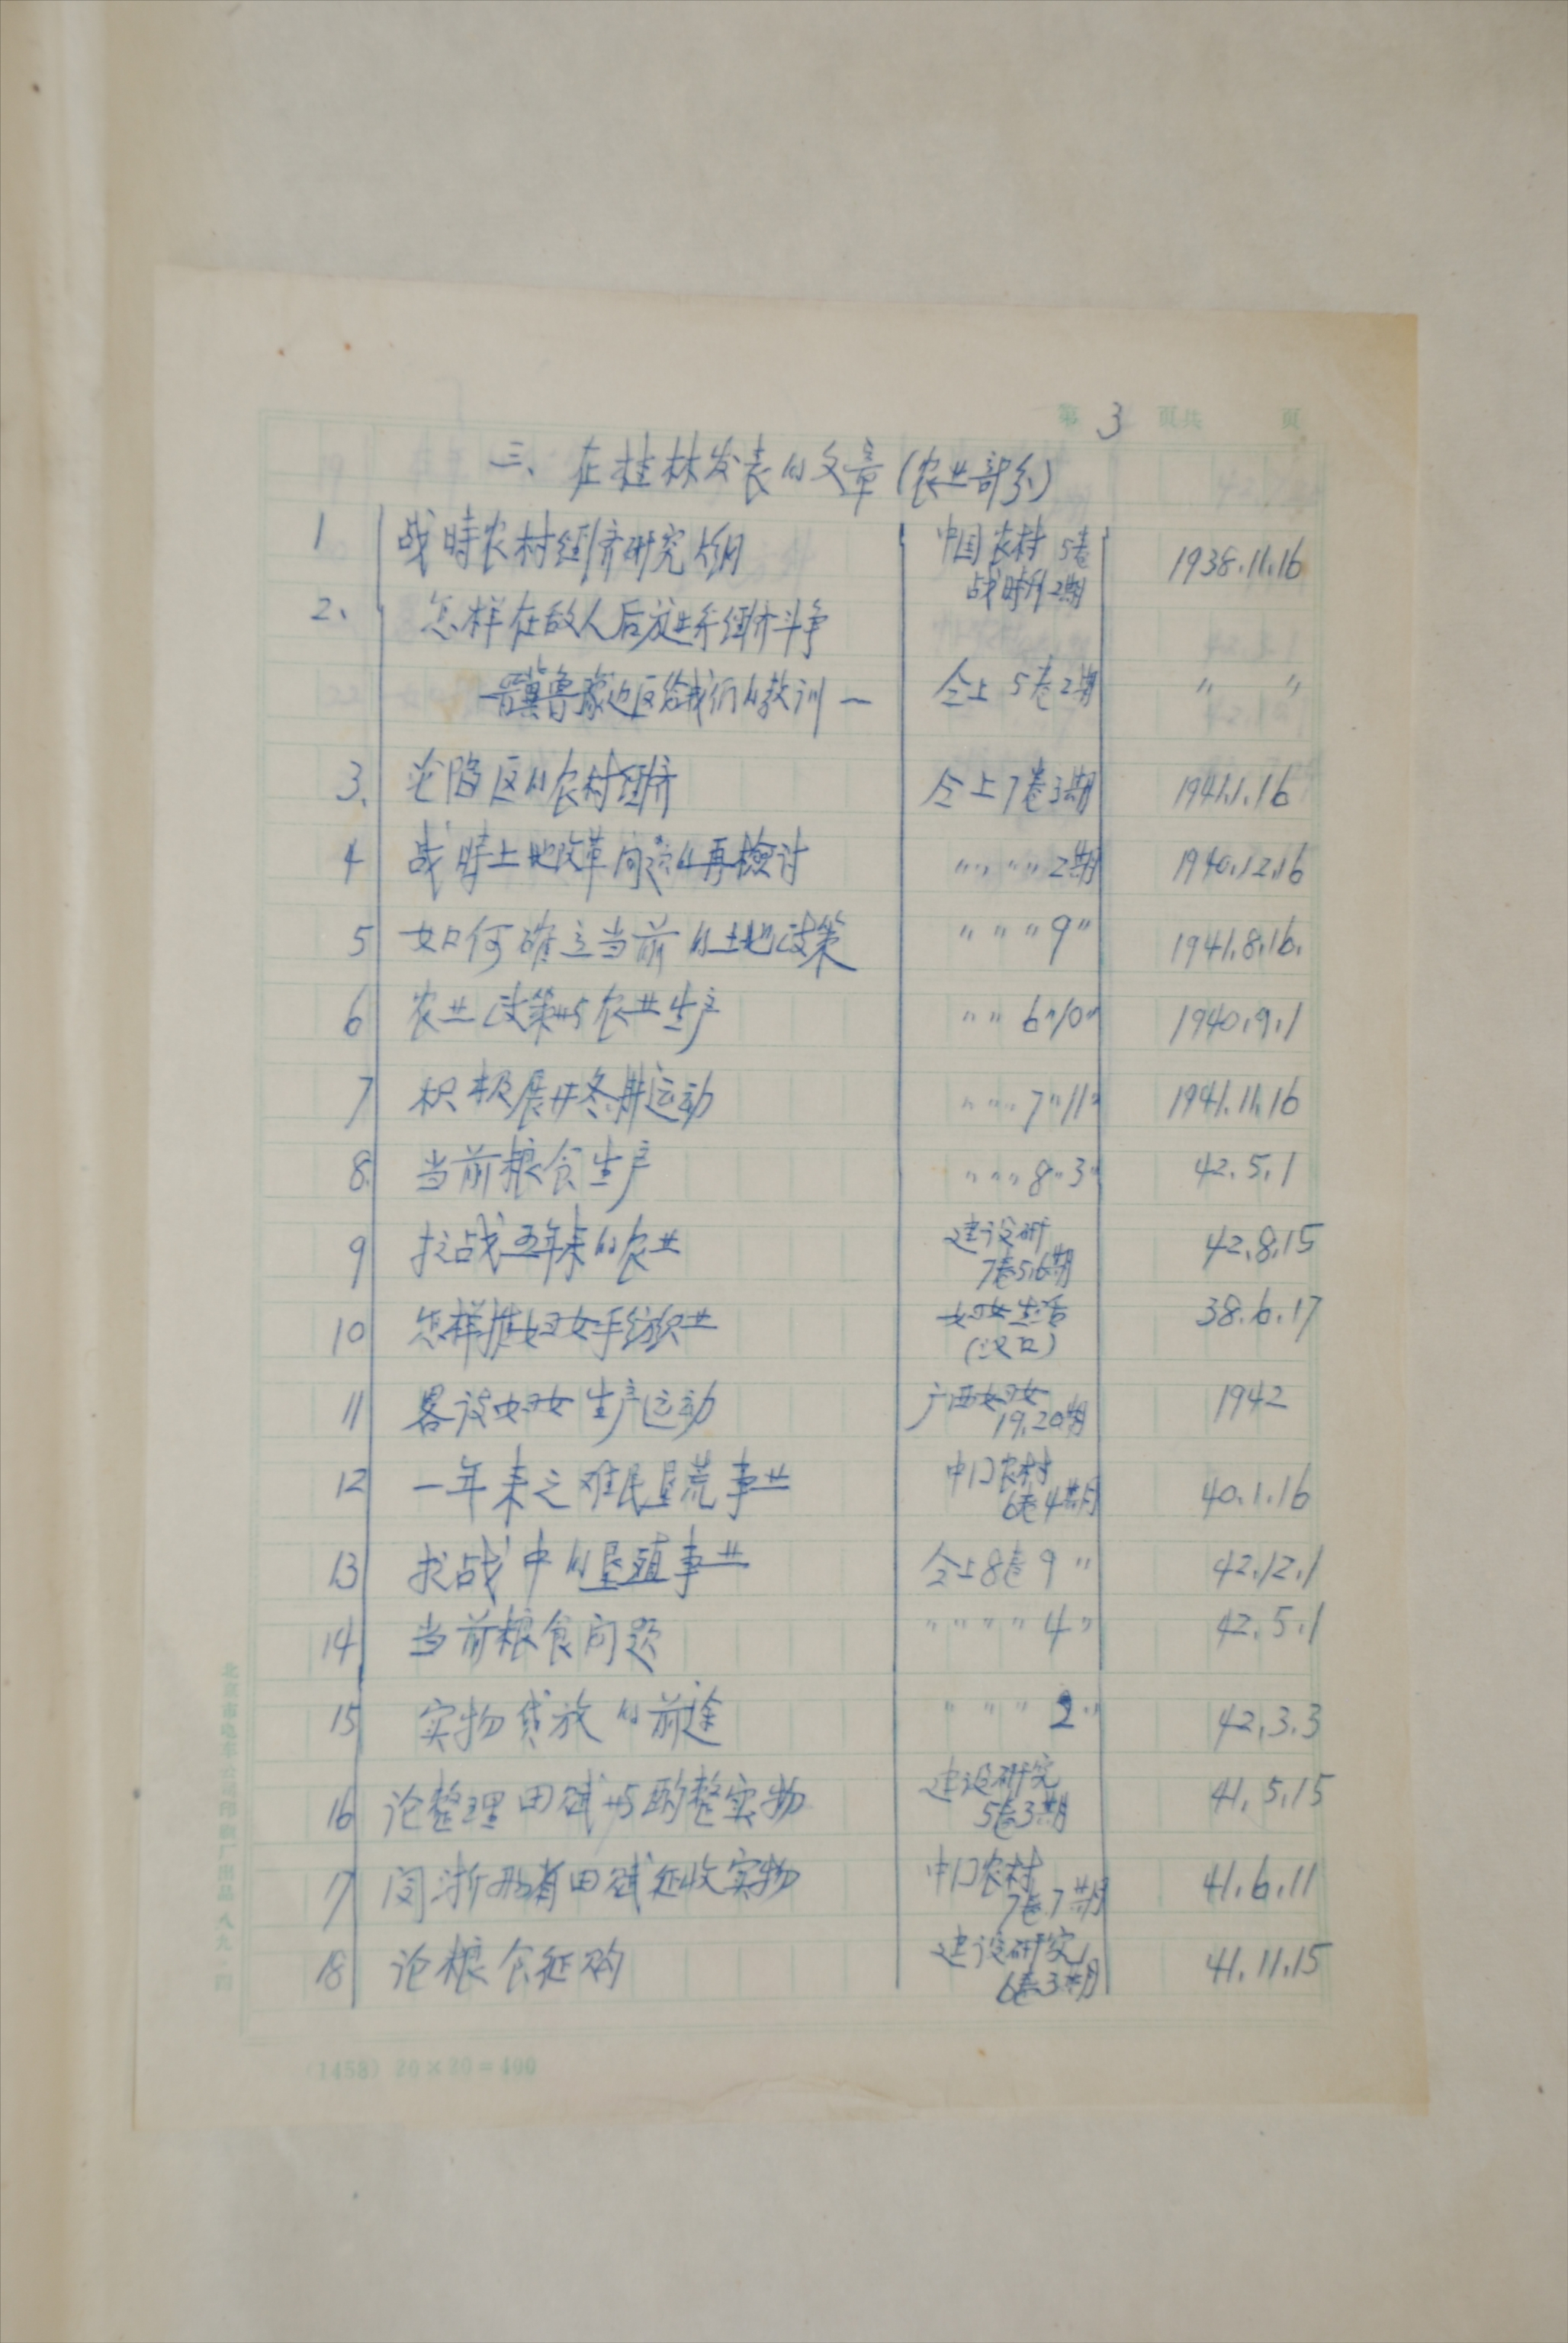 第 3 页共 页
三、在桂林发表的文章(农业部分)
1 战時农村经济研究大纲 中国农村 5卷 战时刊2期 1938.11.16
2、 怎样在敌人后方进行经济斗争
—晋冀鲁豫边区给我们的教训— 仝上 5卷2期 〃 〃
3、 沦陷区的农村经济 仝上7卷3期 1941.1.16
4 战時土地改革问题的再檢讨 〃〃〃〃2期 1940.12.16
5 如何確立当前的土地政策 〃〃〃9〃 1941.8.16.
6 农业政策与农业生产 〃〃6〃10〃 1940.9.1
7 积极展开冬耕运动 〃〃〃7〃11〃 1941.11.16
8. 当前粮食生产 〃〃〃8〃3〃 42.5.1
9 抗战五年来的农业 建设研 7卷5.6期 42.8.15
10 怎样推妇女手纺织业 妇女生活 (汉口) 38.6.17
11 畧谈妇女生产运动 广西妇女 19.20期 1942
12 一年来之难民垦荒事业 中囗农村 6卷4期 40.1.16
13 抗战中的垦殖事业 仝上8卷9〃 42.12.1
14 当前粮食问题 〃〃〃〃4〃 42.5.1
15 实物贷放的前途 〃〃〃2〃 42.3.3
16 论整理田赋与酌整实物 建设研究 5卷3期 41.5.15
17 闽浙两省田赋征收实物 中囗农村 7卷7期 41.6.11
18 论粮食征购 建设研究 6卷3期 41.11.15
北京市电车公司印刷厂出品 八九·四
(1458) 20×20=400